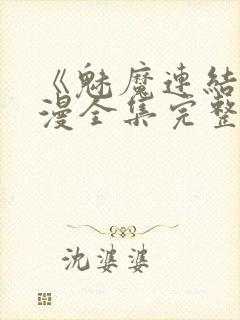 《魅魔連結
漫全集完整
沈婆婆